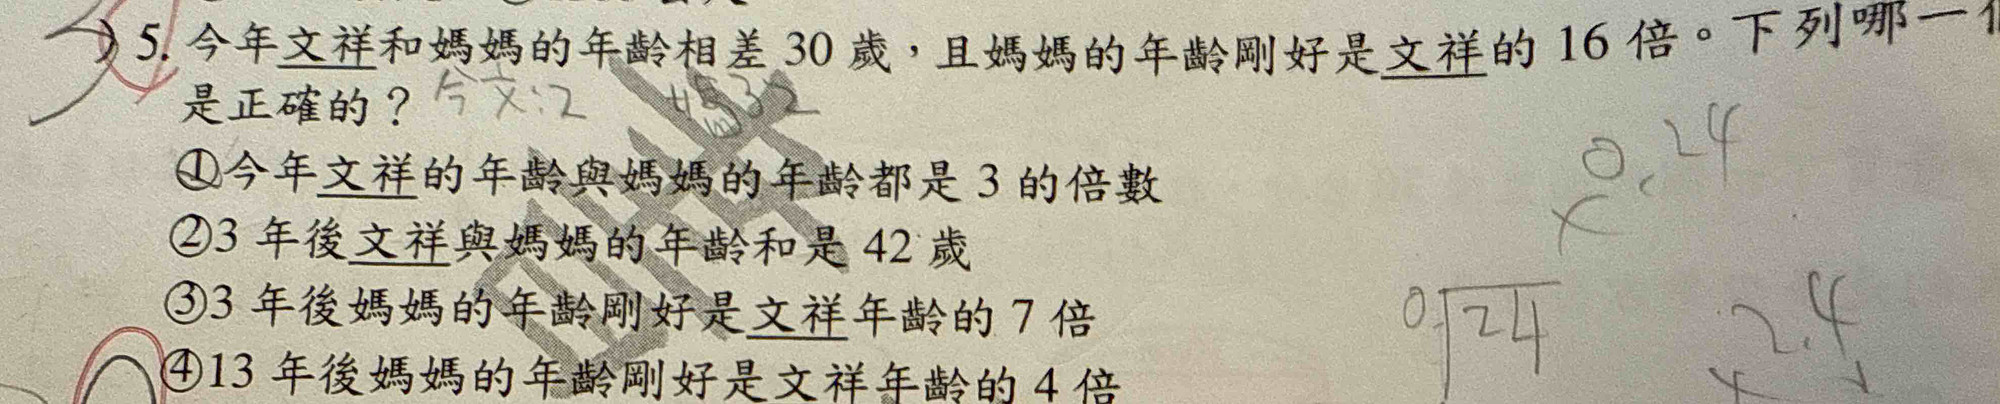 5. 今年文祥和媽媽的年齡相差 30 歲，且媽媽的年齡剛好是文祥的 16 倍。下列哪一
是正確的？ 今文:2 32
①今年文祥的年齡與媽媽的年齡都是 3 的倍數
0.24
②3 年後文祥與媽媽的年齡和是 42 歲
③3 年後媽媽的年齡剛好是文祥年齡的 7 倍
24
2.4
④13 年後媽媽的年齡剛好是文祥年齡的 4 倍